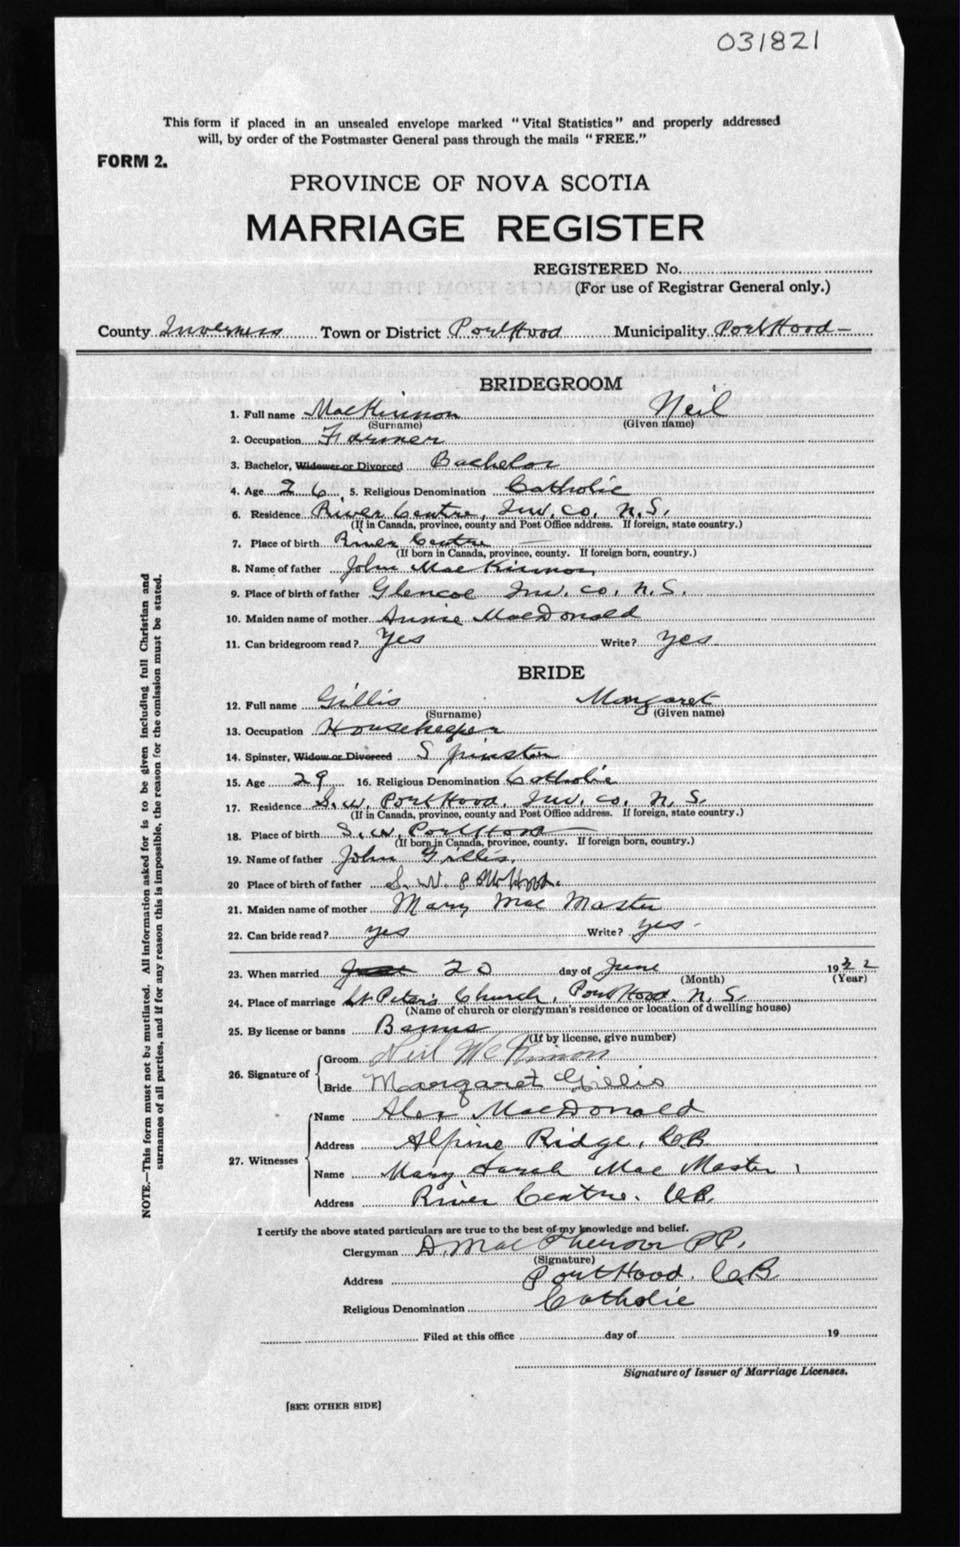 031821
This form if placed in an unsealed envelope marked "Vital Statistics" and properly addressed
will, by order of the Postmaster General pass through the mails "FREE."
FORM 2.
PROVINCE OF NOVA SCOTIA
MARRIAGE REGISTER
REGISTERED No.
(For use of Registrar General only.)
County Inverness Town or District Port Hood Municipality Port Hood -
BRIDEGROOM
1. Full name MacKinnon Neil
(Surname) (Given name)
2. Occupation Farmer
3. Bachelor, Widower or Divorced Bachelor
4. Age 26 5. Religious Denomination Catholic
6. Residence River Centre, Inv. Co. N.S.
(If in Canada, province, county and Post Office address. If foreign, state country.)
7. Place of birth River Centre
(If born in Canada, province, county. If foreign born, country.)
8. Name of father John MacKinnon
9. Place of birth of father Glencoe Inv. Co. N.S.
10. Maiden name of mother Annie MacDonald
11. Can bridegroom read? Yes Write? yes
BRIDE
12. Full name Gillis Margaret
(Surname) (Given name)
13. Occupation Housekeeper
14. Spinster, Widow or Divorced Spinster
15. Age 29 16. Religious Denomination Catholic
17. Residence S.W. Port Hood, Inv. Co. N.S.
(If in Canada, province, county and Post Office address. If foreign, state country.)
18. Place of birth S.W. Port Hood
(If born in Canada, province, county. If foreign born, country.)
19. Name of father John Gillis.
20 Place of birth of father S. W. P. Hood.
21. Maiden name of mother Mary Mac Master
22. Can bride read? yes Write? yes -
23. When married 20 day of June 19 2
(Month) (Year)
24. Place of marriage St Peter's Church, Port Hood. N.S.
(Name of church or clergyman's residence or location of dwelling house)
25. By license or banns Banns
(If by license, give number)
26. Signature of Groom Neil McKinnon
Bride Margaret Gillis
27. Witnesses Name Alex MacDonald
Address Alpine Ridge, C.B
Name Mary Sarah MacMaster
Address River Centre. C.B.
I certify the above stated particulars are true to the best of my knowledge and belief.
Clergyman D. MacPherson P.P.
(Signature)
Address Port Hood. C.B
Religious Denomination Catholic
Filed at this office day of 19
Signature of Issuer of Marriage Licenses.
[SEE OTHER SIDE]
NOTE.—This form must not be mutilated. All information asked for is to be given including full Christian and
surnames of all parties, and if for any reason this is impossible, the reason for the omission must be stated.